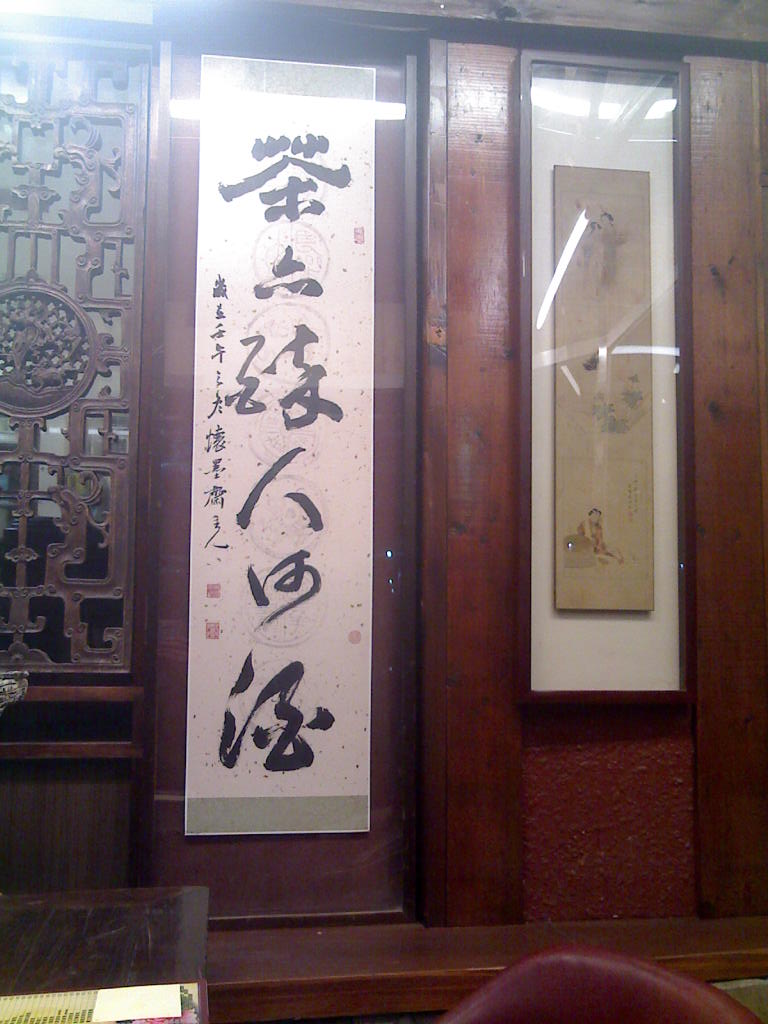 茶亦醉人何必酒
歲在壬午之冬懷墨齋主人